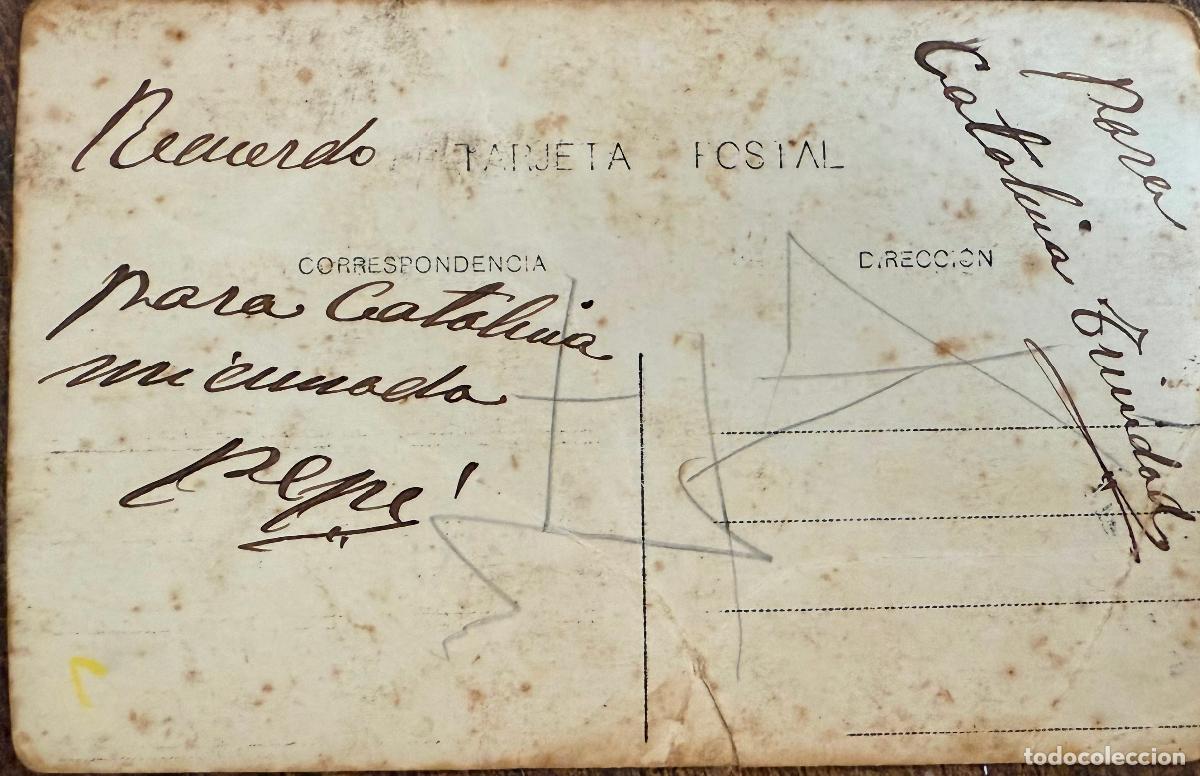 Recuerdo
TARJETA POSTAL
CORRESPONDENCIA
DIRECCIÓN
para Catalina
mi cunada
Pepé
para
Catalina Trinidad
todocoleccion